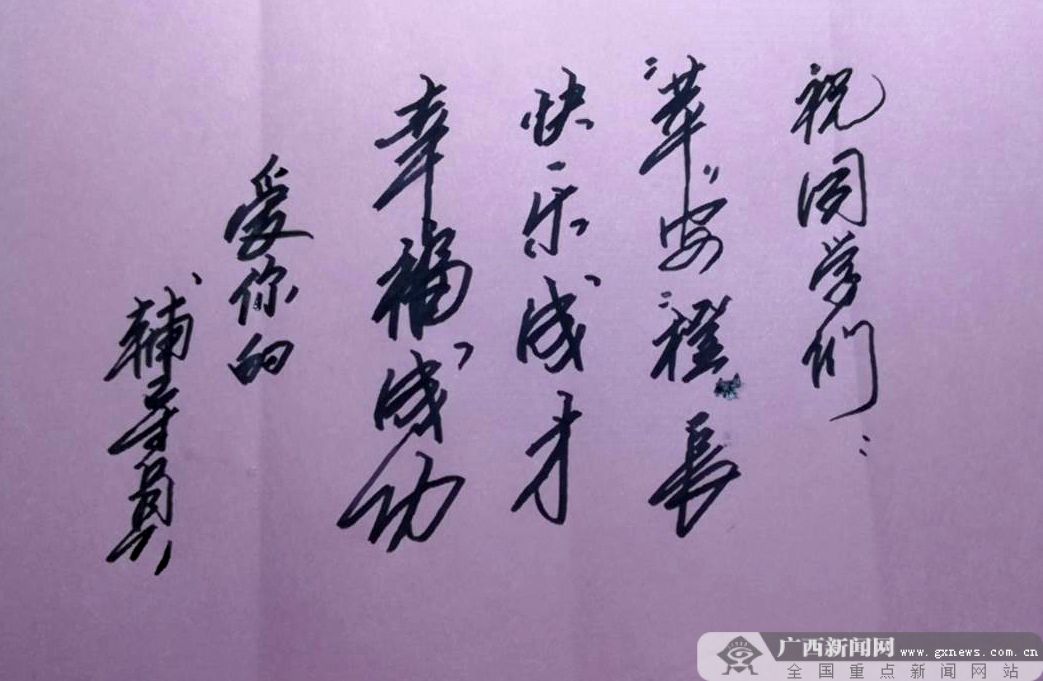 祝同学们：
“苹”安“橙”长
快乐成才
幸福成功
爱你的
辅导员
广西新闻网 www.gxnews.com.cn
全国重点新闻网站